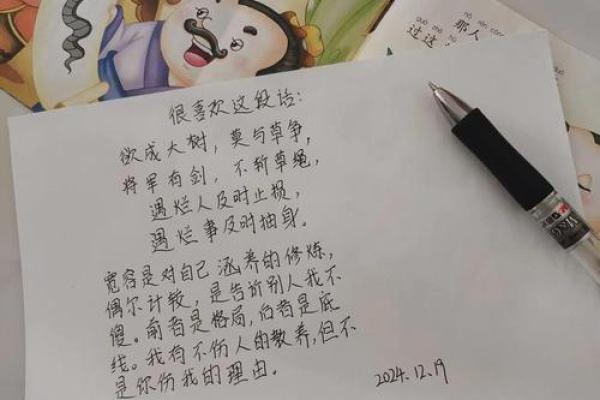 nà
nèn
cóng
那人
guò
zhè
过这
很喜欢这段话:
欲成大树，莫与草争，
将军有剑，不斩草绳，
遇烂人及时止损，
遇烂事及时抽身。
宽容是对自己涵养的修炼，
偶尔计较，是告诉别人我不
傻。前者是格局，后者是底
线。我有不伤人的教养，但不
是你伤我的理由。
2024.12.19
M&G